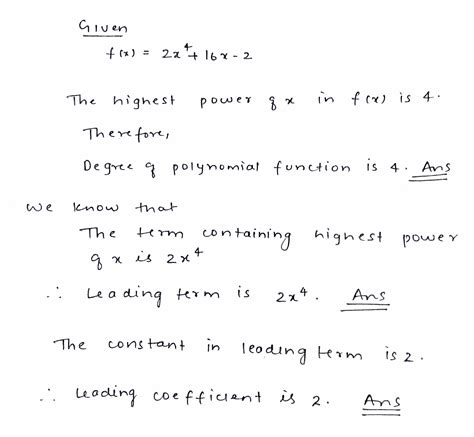 Given
f(x) = 2x⁴ + 16x - 2
The highest power of x in f(x) is 4.
Therefore,
Degree of polynomial function is 4. Ans
We know that
The term containing highest power
of x is 2x⁴
∴ Leading term is 2x⁴. Ans
The constant in leading term is 2.
∴ Leading coefficient is 2. Ans